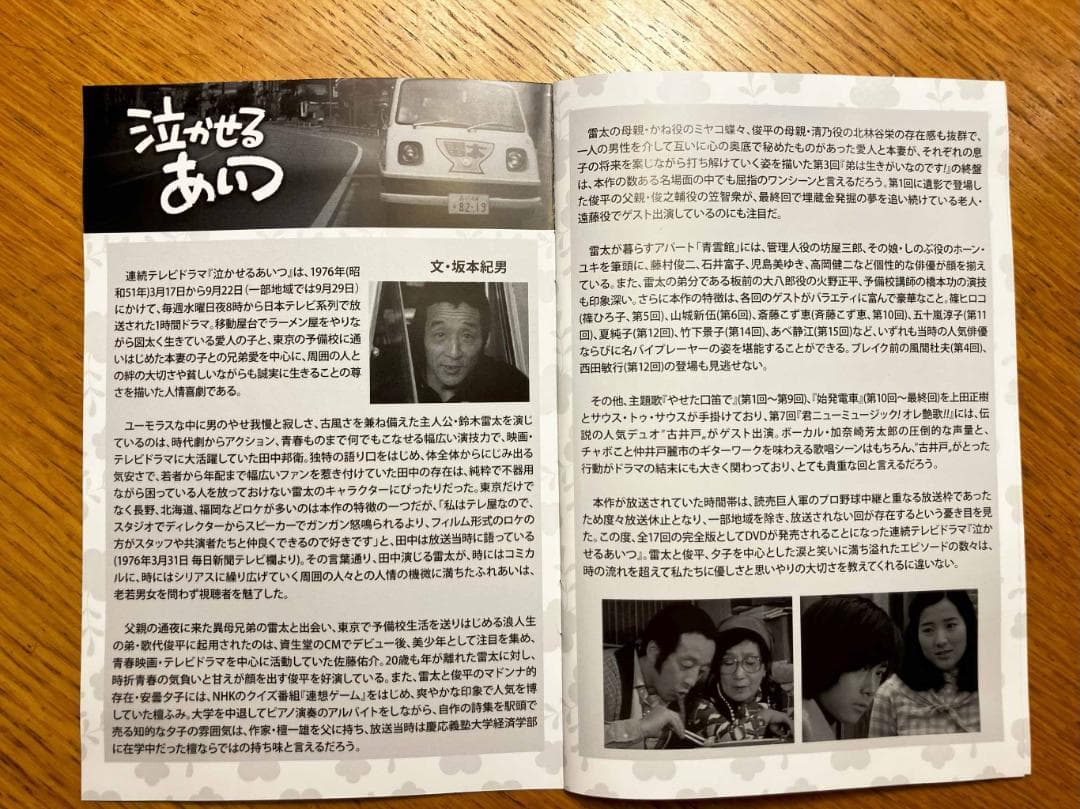 泣かせる
あいつ
雷太
82-19
文・坂本紀男
連続テレビドラマ『泣かせるあいつ』は、1976年(昭
和51年)3月17日から9月22日(一部地域では9月29日)
にかけて、毎週水曜日夜8時から日本テレビ系列で放
送された1時間ドラマ。移動屋台でラーメン屋をやりな
がら図太く生きている愛人の子と、東京の予備校に通
いはじめた本妻の子との兄弟愛を中心に、周囲の人と
の絆の大切さや貧しいながらも誠実に生きることの尊
さを描いた人情喜劇である。
ユーモラスな中に男のやせ我慢と寂しさ、古風さを兼ね備えた主人公・鈴木雷太を演じ
ているのは、時代劇からアクション、青春ものまで何でもこなせる幅広い演技力で、映画・
テレビドラマに大活躍していた田中邦衛。独特の語り口をはじめ、体全体からにじみ出る
気安さで、若者から年配まで幅広いファンを惹き付けていた田中の存在は、純粋で不器用
ながら困っている人を放っておけない雷太のキャラクターにぴったりだった。東京だけで
なく長野、北海道、福岡などロケが多いのは本作の特徴の一つだが、「私はテレ屋なので、
スタジオでディレクターからスピーカーでガンガン怒鳴られるより、フィルム形式のロケの
方がスタッフや共演者たちと仲良くできるので好きです」と、田中は放送当時に語っている
(1976年3月31日 毎日新聞テレビ欄より)。その言葉通り、田中演じる雷太が、時にはコミカ
ルに、時にはシリアスに繰り広げていく周囲の人々との人情の機微に満ちたふれあいは、
老若男女を問わず視聴者を魅了した。
父親の通夜に来た異母兄弟の雷太と出会い、東京で予備校生活を送りはじめる浪人生
の弟・歌代俊平に起用されたのは、資生堂のCMでデビュー後、美少年として注目を集め、
青春映画・テレビドラマを中心に活動していた佐藤佑介。20歳も年が離れた雷太に対し、
時折青春の気負いと甘えが顔を出す俊平を好演している。また、雷太と俊平のマドンナ的
存在・安曇夕子には、NHKのクイズ番組『連想ゲーム』をはじめ、爽やかな印象で人気を博
していた檀ふみ。大学を中退してピアノ演奏のアルバイトをしながら、自作の詩集を駅頭で
売る知的な夕子の雰囲気は、作家・檀一雄を父に持ち、放送当時は慶応義塾大学経済学部
に在学中だった檀ならではの持ち味と言えるだろう。
雷太の母親・かね役のミヤコ蝶々、俊平の母親・清乃役の北林谷栄の存在感も抜群で、
一人の男性を介して互いに心の奥底で秘めたものがあった愛人と本妻が、それぞれの息
子の将来を案じながら打ち解けていく姿を描いた第3回『弟は生きがいなのです!』の終盤
は、本作の数ある名場面の中でも屈指のワンシーンと言えるだろう。第1回に遺影で登場し
た俊平の父親・俊之輔役の笠智衆が、最終回で埋蔵金発掘の夢を追い続けている老人・
遠藤役でゲスト出演しているのにも注目だ。
雷太が暮らすアパート「青雲館」には、管理人役の坊屋三郎、その娘・しのぶ役のホーン・
ユキを筆頭に、藤村俊二、石井富子、児島美ゆき、高岡健二など個性的な俳優が顔を揃え
ている。また、雷太の弟分である板前の大八郎役の火野正平、予備校講師の橋本功の演技
も印象深い。さらに本作の特徴は、各回のゲストがバラエティに富んで豪華なこと。篠ヒロコ
(篠ひろ子、第5回)、山城新伍(第6回)、斎藤こず恵(斉藤こず恵、第10回)、五十嵐淳子(第11
回)、夏純子(第12回)、竹下景子(第14回)、あべ静江(第15回)など、いずれも当時の人気俳優
ならびに名バイプレーヤーの姿を堪能することができる。ブレイク前の風間杜夫(第4回)、
西田敏行(第12回)の登場も見逃せない。
その他、主題歌『やせた口笛で』(第1回〜第9回)、『始発電車』(第10回〜最終回)を上田正樹
とサウス・トゥ・サウスが手掛けており、第7回『君ニューミュージック!オレ艶歌!!』には、伝
説の人気デュオ“古井戸„がゲスト出演。ボーカル・加奈崎芳太郎の圧倒的な声量と、
チャボこと仲井戸麗市のギターワークを味わえる歌唱シーンはもちろん、“古井戸„がとった
行動がドラマの結末にも大きく関わっており、とても貴重な回と言えるだろう。
本作が放送されていた時間帯は、読売巨人軍のプロ野球中継と重なる放送枠であった
ため度々放送休止となり、一部地域を除き、放送されない回が存在するという憂き目を見
た。この度、全17回の完全版としてDVDが発売されることになった連続テレビドラマ『泣か
せるあいつ』。雷太と俊平、夕子を中心とした涙と笑いに満ち溢れたエピソードの数々は、
時の流れを超えて私たちに優しさと思いやりの大切さを教えてくれるに違いない。